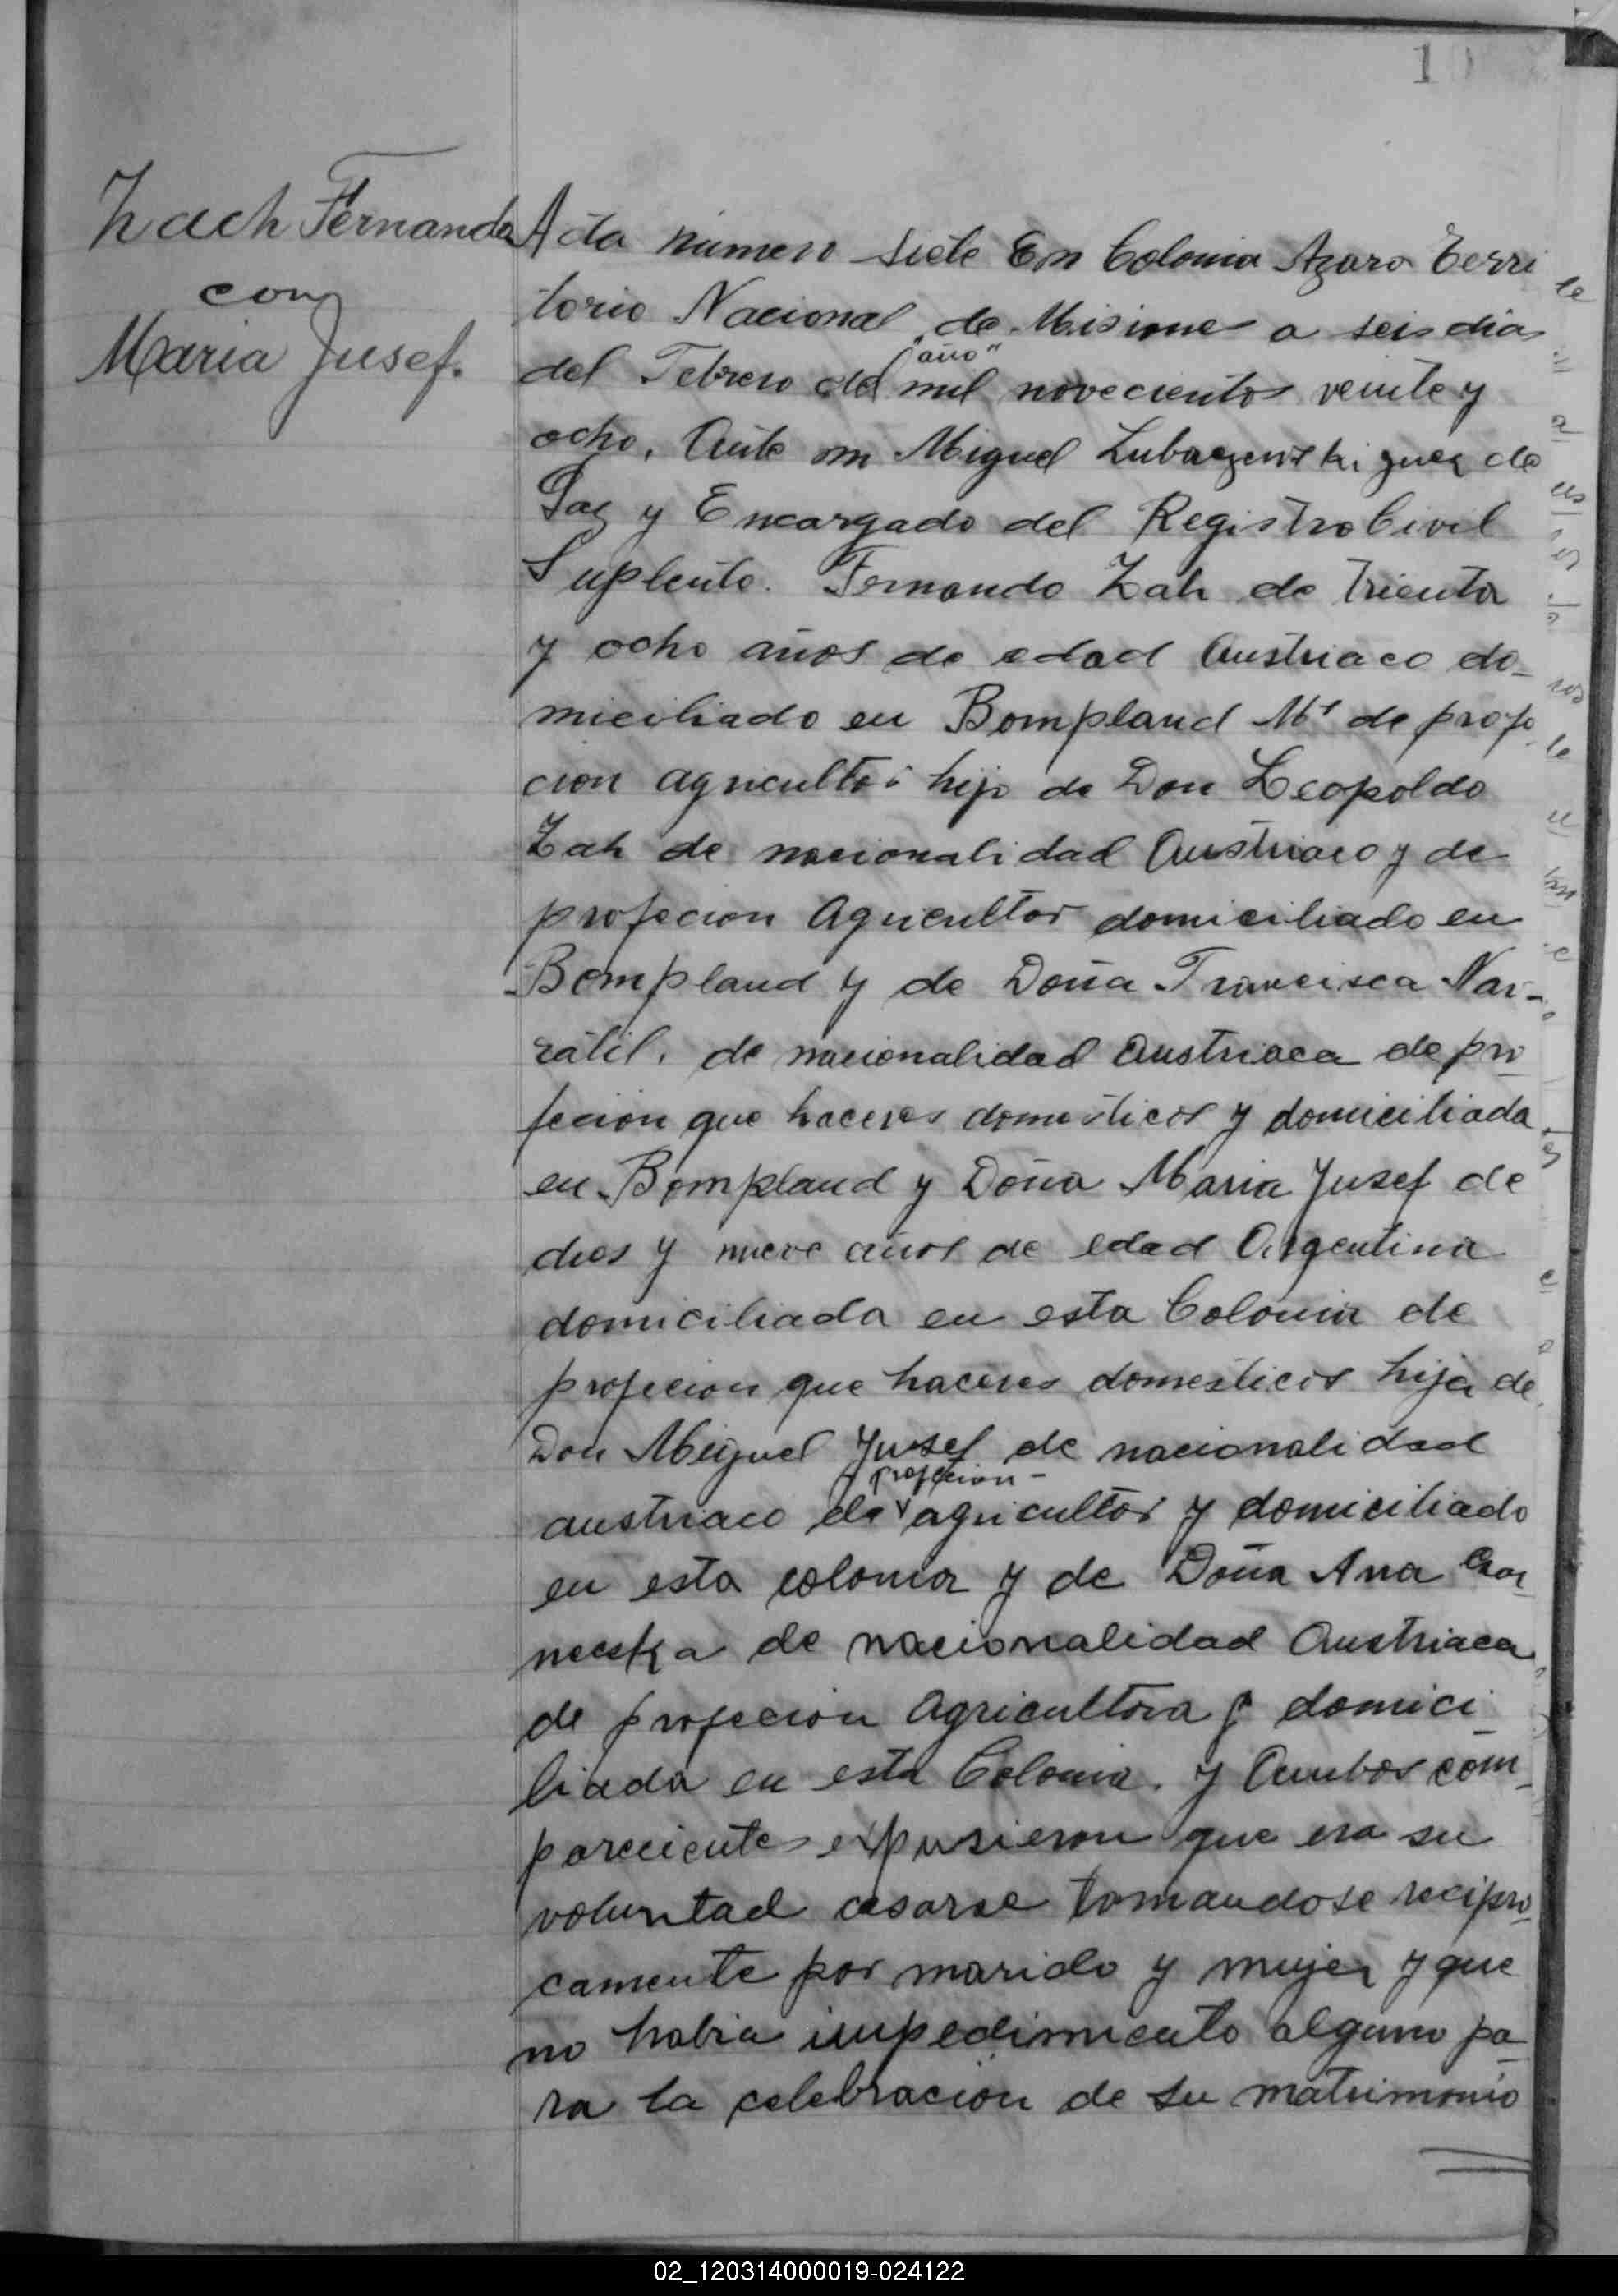 10
Zach Fernando
con
Maria Jusef.
Acta numero siete En Colonia Azara Terri
torio Nacional de Misiones a seis dias
"año"
del Febrero del mil novecientos veinte y
ocho. Ante mi Miguel Lubaczewski guez de
Paz y Encargado del Registro Civil
Suplente. Fernando Zah de trienta
y ocho años de edad Austriaco do-
miciliado en Bompland Ms de profe
cion agricultor hijo de Don Leopoldo
Zah de nacionalidad Austriaco y de
profecion Agricultor domiciliado en
Bompland y de Doña Francisca Nar-
ratil. de nacionalidad Austriaca de pro
fecion que haceres domesticos y domiciliada
en Bompland y Doña Maria Jusef de
dies y nueve años de edad Argentina
domiciliada en esta Colonia de
profecion que haceres domesticos hija de
Don Miguel Jusef de nacionalidad
profecion -
austriaco de agricultor y domiciliado
en esta colonia y de Doña Ana
de nacionalidad Austriaca
de profecion Agricultora y domici
liada en esta Colonia. y Ambos com-
parecientes expusieron que era su
voluntad casarse tomandose recipro
camente por marido y mujer y que
no habia impedimiento alguno pa
ra la celebracion de su matrimonio
02_120314000019-024122